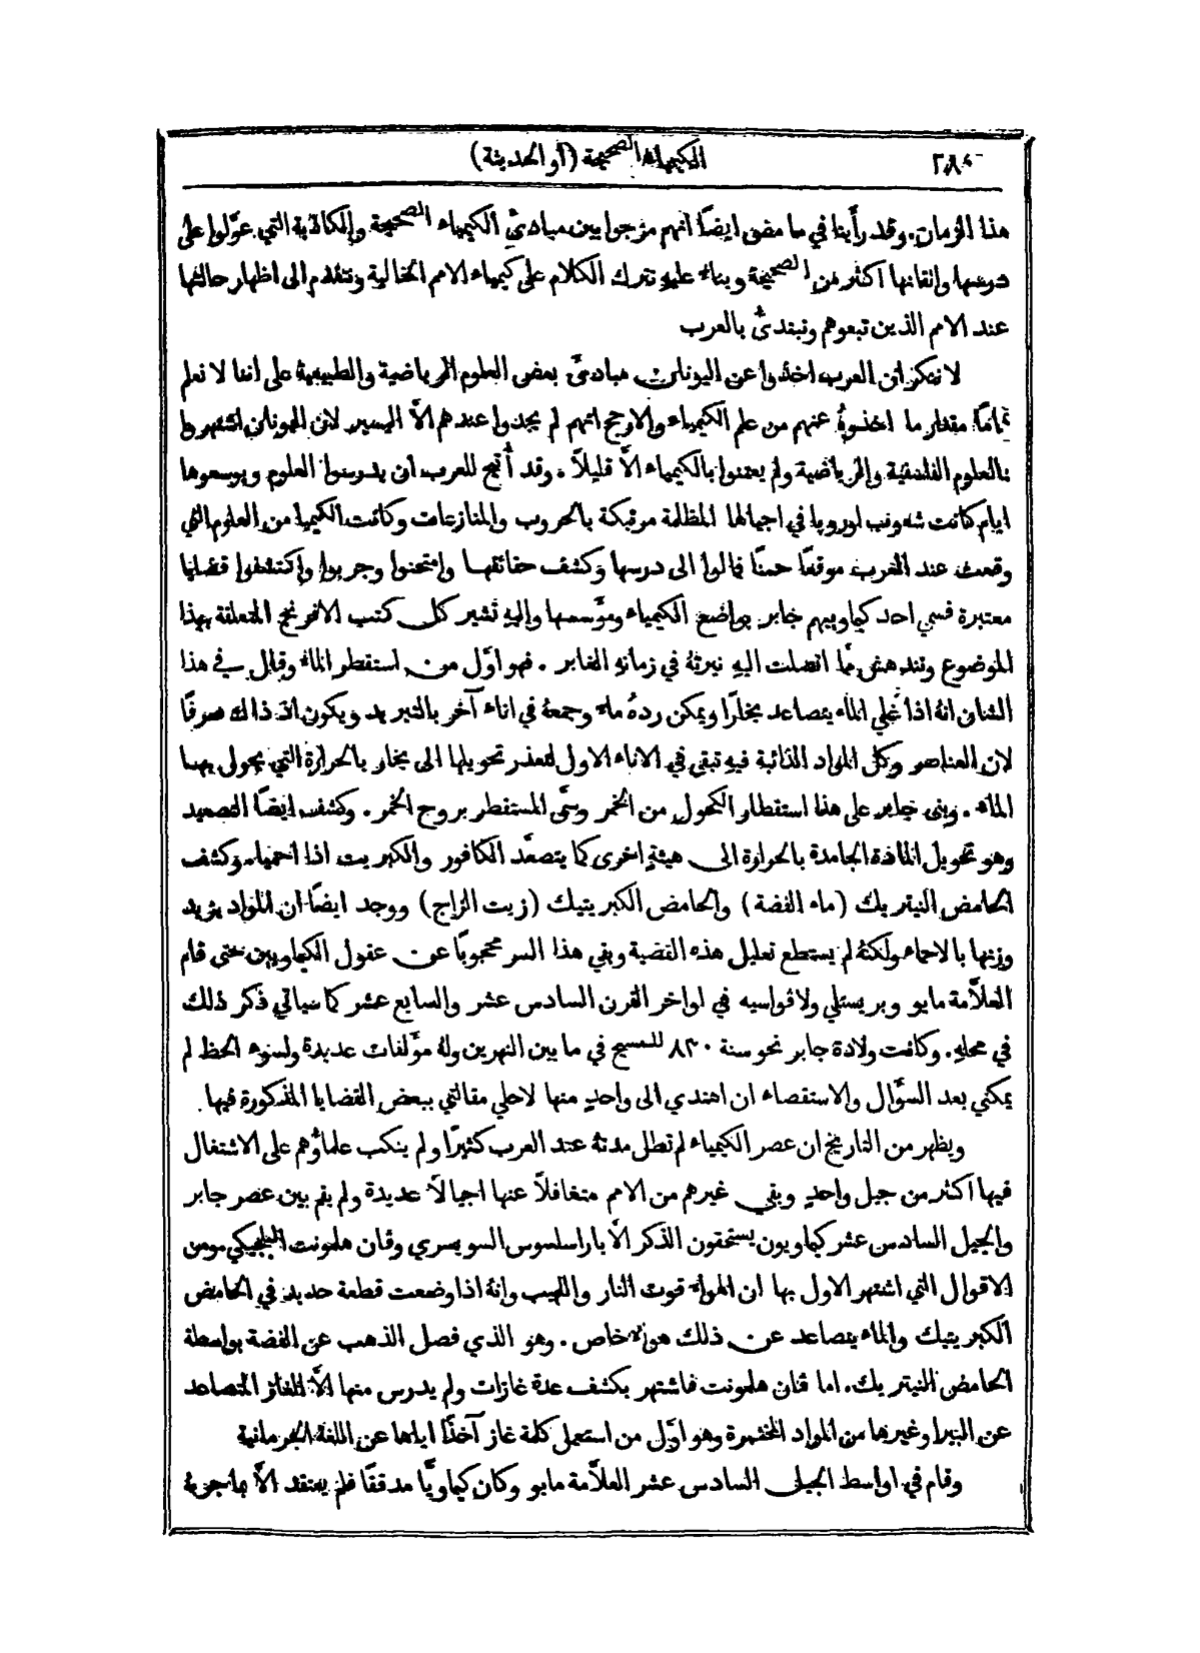 الكيمياء الصحيحة (او الحديثة)
هذا الزمان. وقد رأينا في ما مضى ايضًا انهم مزجوا بين مبادئ الكيمياء الصحيحة والكاذبة التي عوّلوا على
درسها واتقانها اكثر من الصحيحة وبناء عليه نترك الكلام على كيمياء الامم الخالية ونتقدم الى اظهار حالتها
عند الامم الذين تبعوهم ونبتدئ بالعرب
لا ننكر ان العرب اخذوا عن اليونان مبادئ بعض العلوم الرياضية والطبيعية على اننا لا نعلم
تمامًا مقدار ما اخذوهُ عنهم من علم الكيمياء والارجح انهم لم يجدوا عندهم الاَّ اليسير لان اليونان اشتهروا
بالعلوم الفلسفية والرياضية ولم يعتنوا بالكيمياء الاَّ قليلاً. وقد أُتيح للعرب ان يدرسوا العلوم ويوسعوها
ايام كانت شعوب اوروپا في اجيالها المظلمة مرتبكة بالحروب والمنازعات وكانت الكيميا من العلوم التي
وقعت عند العرب موقعًا حسنًا فمالوا الى درسها وكشف حقائقها وامتحنوا وجربوا واكتشفوا قضايا
معتبرة فسمي احد كيماوييهم جابر بواضع الكيمياء ومؤَسسها واليهِ تشير كل كتب الافرنج المتعلقة بهذا
الموضوع وتندهش مما اتصلت اليهِ نبرتهُ في زمانهِ الغابر. فهو اوَّل من استقطر الماء وقال في هذا
الشان انهُ اذا غُلي الماء يتصاعد بخارًا ويمكن ردهُ ماء وجمعهُ في اناء آخر بالتبريد ويكون اذ ذاك صرفًا
لان العناصر وكل المواد الذائبة فيهِ تبقى في الاناء الاول لتعذر تحويلها الى بخار بالحرارة التي يحول بها
الماء. وبنى جابر على هذا استقطار الكحول من الخمر وسمَّى المستقطر بروح الخمر. وكشف ايضًا التصعيد
وهو تحويل المادة الجامدة بالحرارة الى هيئةٍ اخرى كما يتصعَّد الكافور والكبريت اذا احميا. وكشف
الحامض النيتريك (ماء الفضة) والحامض الكبريتيك (زيت الزاج) ووجد ايضًا ان المواد يزيد
وزنها بالاحماء ولكنهُ لم يستطع تعليل هذه القضية وبقي هذا السر محجوبًا عن عقول الكيماويين حتى قام
العلاَّمة مايو وبريستلي ولاڤواسيه في اواخر القرن السادس عشر والسابع عشر كما سياتي ذكر ذلك
في محلهِ. وكانت ولادة جابر نحو سنة ٨٣٠ للمسيح في ما بين النهرين ولهُ مؤَلفات عديدة ولسوء الحظ لم
يمكني بعد السؤَال والاستقصاء ان اهتدي الى واحدٍ منها لاحلي مقالتي ببعض القضايا المذكورة فيها.
ويظهر من التاريخ ان عصر الكيمياء لم تطل مدتهُ عند العرب كثيرًا ولم ينكب علماؤُهم على الاشتغال
فيها اكثر من جيل واحدٍ وبقي غيرهم من الامم متغافلاً عنها اجيالاً عديدة ولم يقم بين عصر جابر
والجيل السادس عشر كيماويون يستحقون الذكر الاَّ باراسلسوس السويسري وڤان هلمونت البلجيكي ومن
الاقوال التي اشتهر الاول بها ان الهواء قوت النار واللهيب وانهُ اذا وضعت قطعة حديد في الحامض
الكبريتيك والماء يتصاعد عن ذلك هواءٌ خاص. وهو الذي فصل الذهب عن الفضة بواسطة
الحامض النيتريك. اما ڤان هلمونت فاشتهر بكشف عدة غازات ولم يدرس منها الاَّ الغاز المتصاعد
عن البيرا وغيرها من المواد المختمرة وهو اوَّل من استعمل كلمة غاز آخذًا اياها عن اللغة الجرمانية
وقام في اواسط الجيل السادس عشر العلاَّمة مايو وكان كيماويًّا مدققًا فلم يعتقد الاَّ بما جربهُ